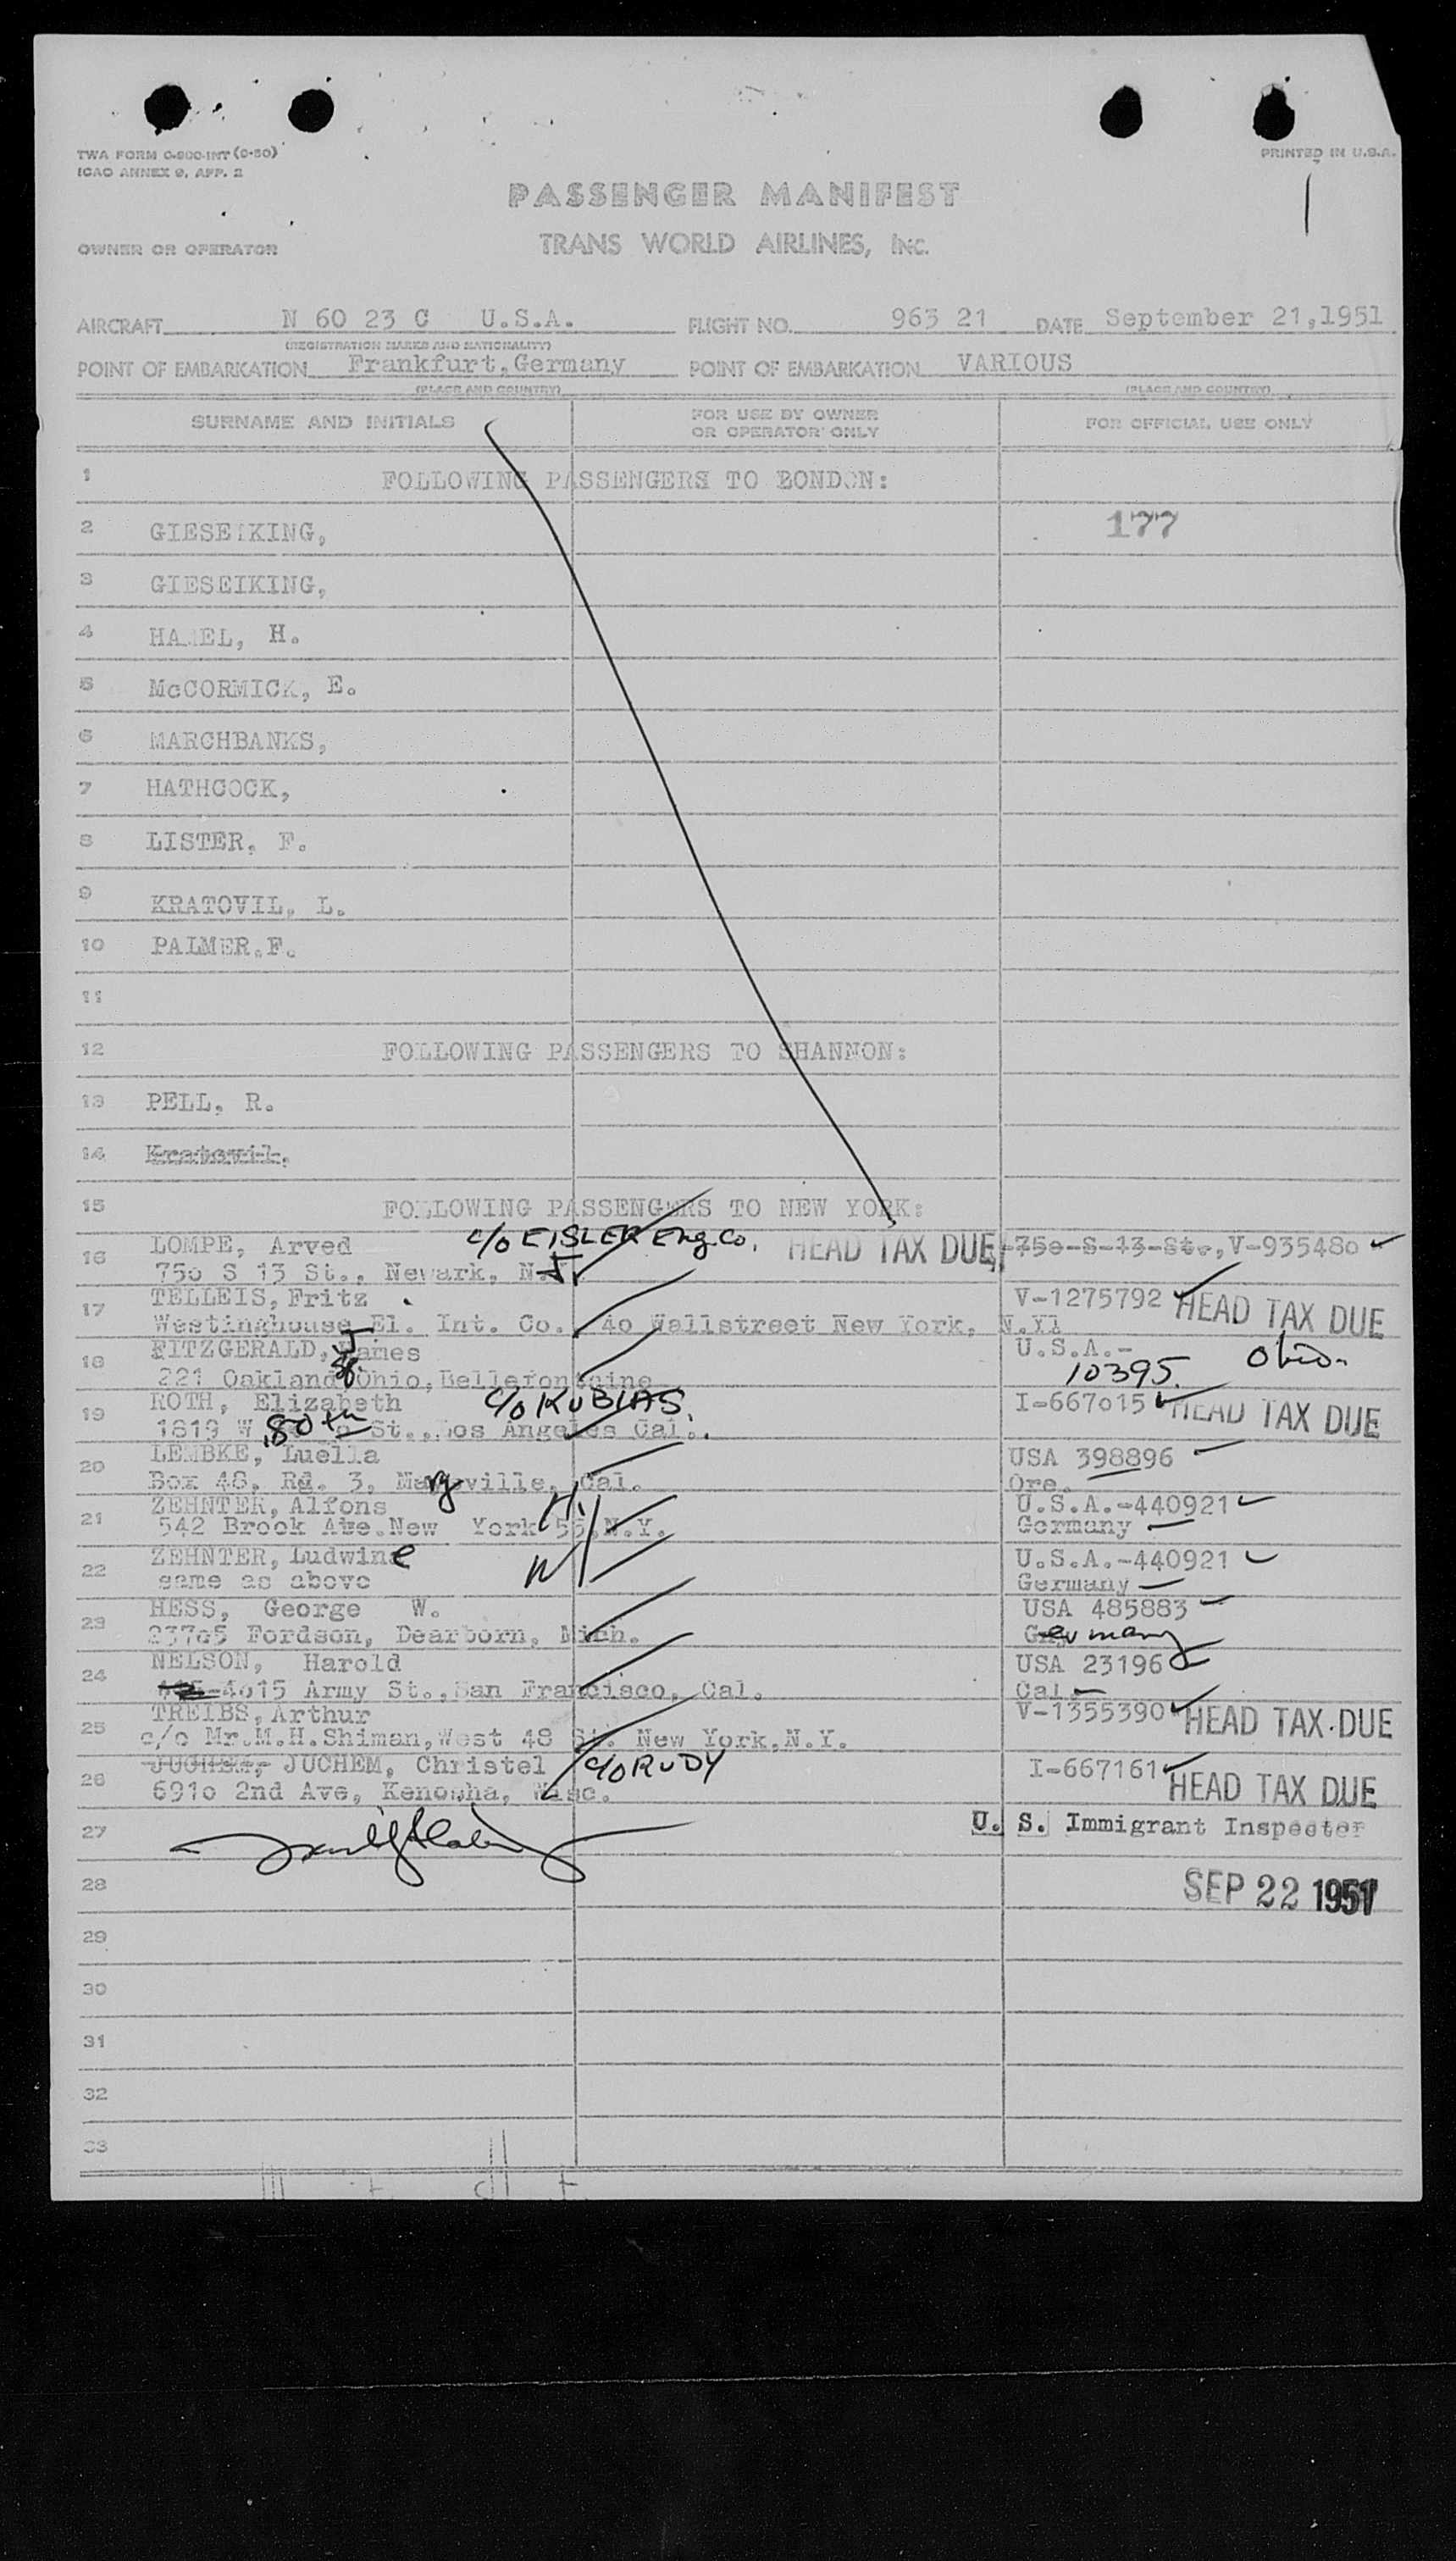 TWA FORM O-900-INT (6-50)
ICAO ANNEX 9, APP. 2
PRINTED IN U.S.A.
PASSENGER MANIFEST
OWNER OR OPERATOR TRANS WORLD AIRLINES, INC.
AIRCRAFT N 60 23 C U.S.A. FLIGHT NO. 963 21 DATE September 21,1951
(REGISTRATION MARKS AND NATIONALITY)
POINT OF EMBARKATION Frankfurt,Germany POINT OF EMBARKATION VARIOUS
(PLACE AND COUNTRY) (PLACE AND COUNTRY)
SURNAME AND INITIALS FOR USE BY OWNER OR OPERATOR ONLY FOR OFFICIAL USE ONLY
1 FOLLOWING PASSENGERS TO BONDON:
2 GIESEIKING, 177
3 GIESEIKING,
4 HAMEL, H.
5 McCORMICK, E.
6 MARCHBANKS,
7 HATHCOCK,
8 LISTER, F.
9 KRATOVIL, L.
10 PALMER.F.
11
12 FOLLOWING PASSENGERS TO SHANNON:
13 PELL, R.
14 Kratowil,
15 FOLLOWING PASSENGERS TO NEW YORK:
16 LOMPE, Arved c/o EISLER Eng. Co. HEAD TAX DUE 75o-S-13-Str, V-93548o
75o S 13 St., Newark, N.J.
17 TELLEIS, Fritz V-1275792 HEAD TAX DUE
Westinghouse El. Int. Co. 4o Wallstreet New York, N.Y1
18 FITZGERALD, James U.S.A.-
221 Oakland Ohio, Bellefontaine 10395. Ohio.
19 ROTH, Elizabeth c/o KUBIAS. I-667o15 HEAD TAX DUE
1819 W 80th St.,Los Angeles Cal.
20 LEMBKE, Luella USA 398896
Box 48, Rd. 3, Maryville, Cal. Ore.
21 ZEHNTER, Alfons U.S.A.-440921
542 Brook Ave.New York 55,N.Y. Germany
22 ZEHNTER, Ludwine U.S.A.-440921
same as above Germany
23 HESS, George W. USA 485883
237o5 Fordson, Dearborn, Mich. Germany
24 NELSON, Harold USA 23196
-4o15 Army St.,San Francisco, Cal. Cal.
25 TREIBS, Arthur V-1355390 HEAD TAX DUE
c/o Mr.M.H.Shiman,West 48 St. New York,N.Y.
26 JUCHEM, Christel c/o RUDY I-667161 HEAD TAX DUE
691o 2nd Ave, Kenosha, Wisc.
27 U. S. Immigrant Inspector
28 SEP 22 1951
29
30
31
32
33